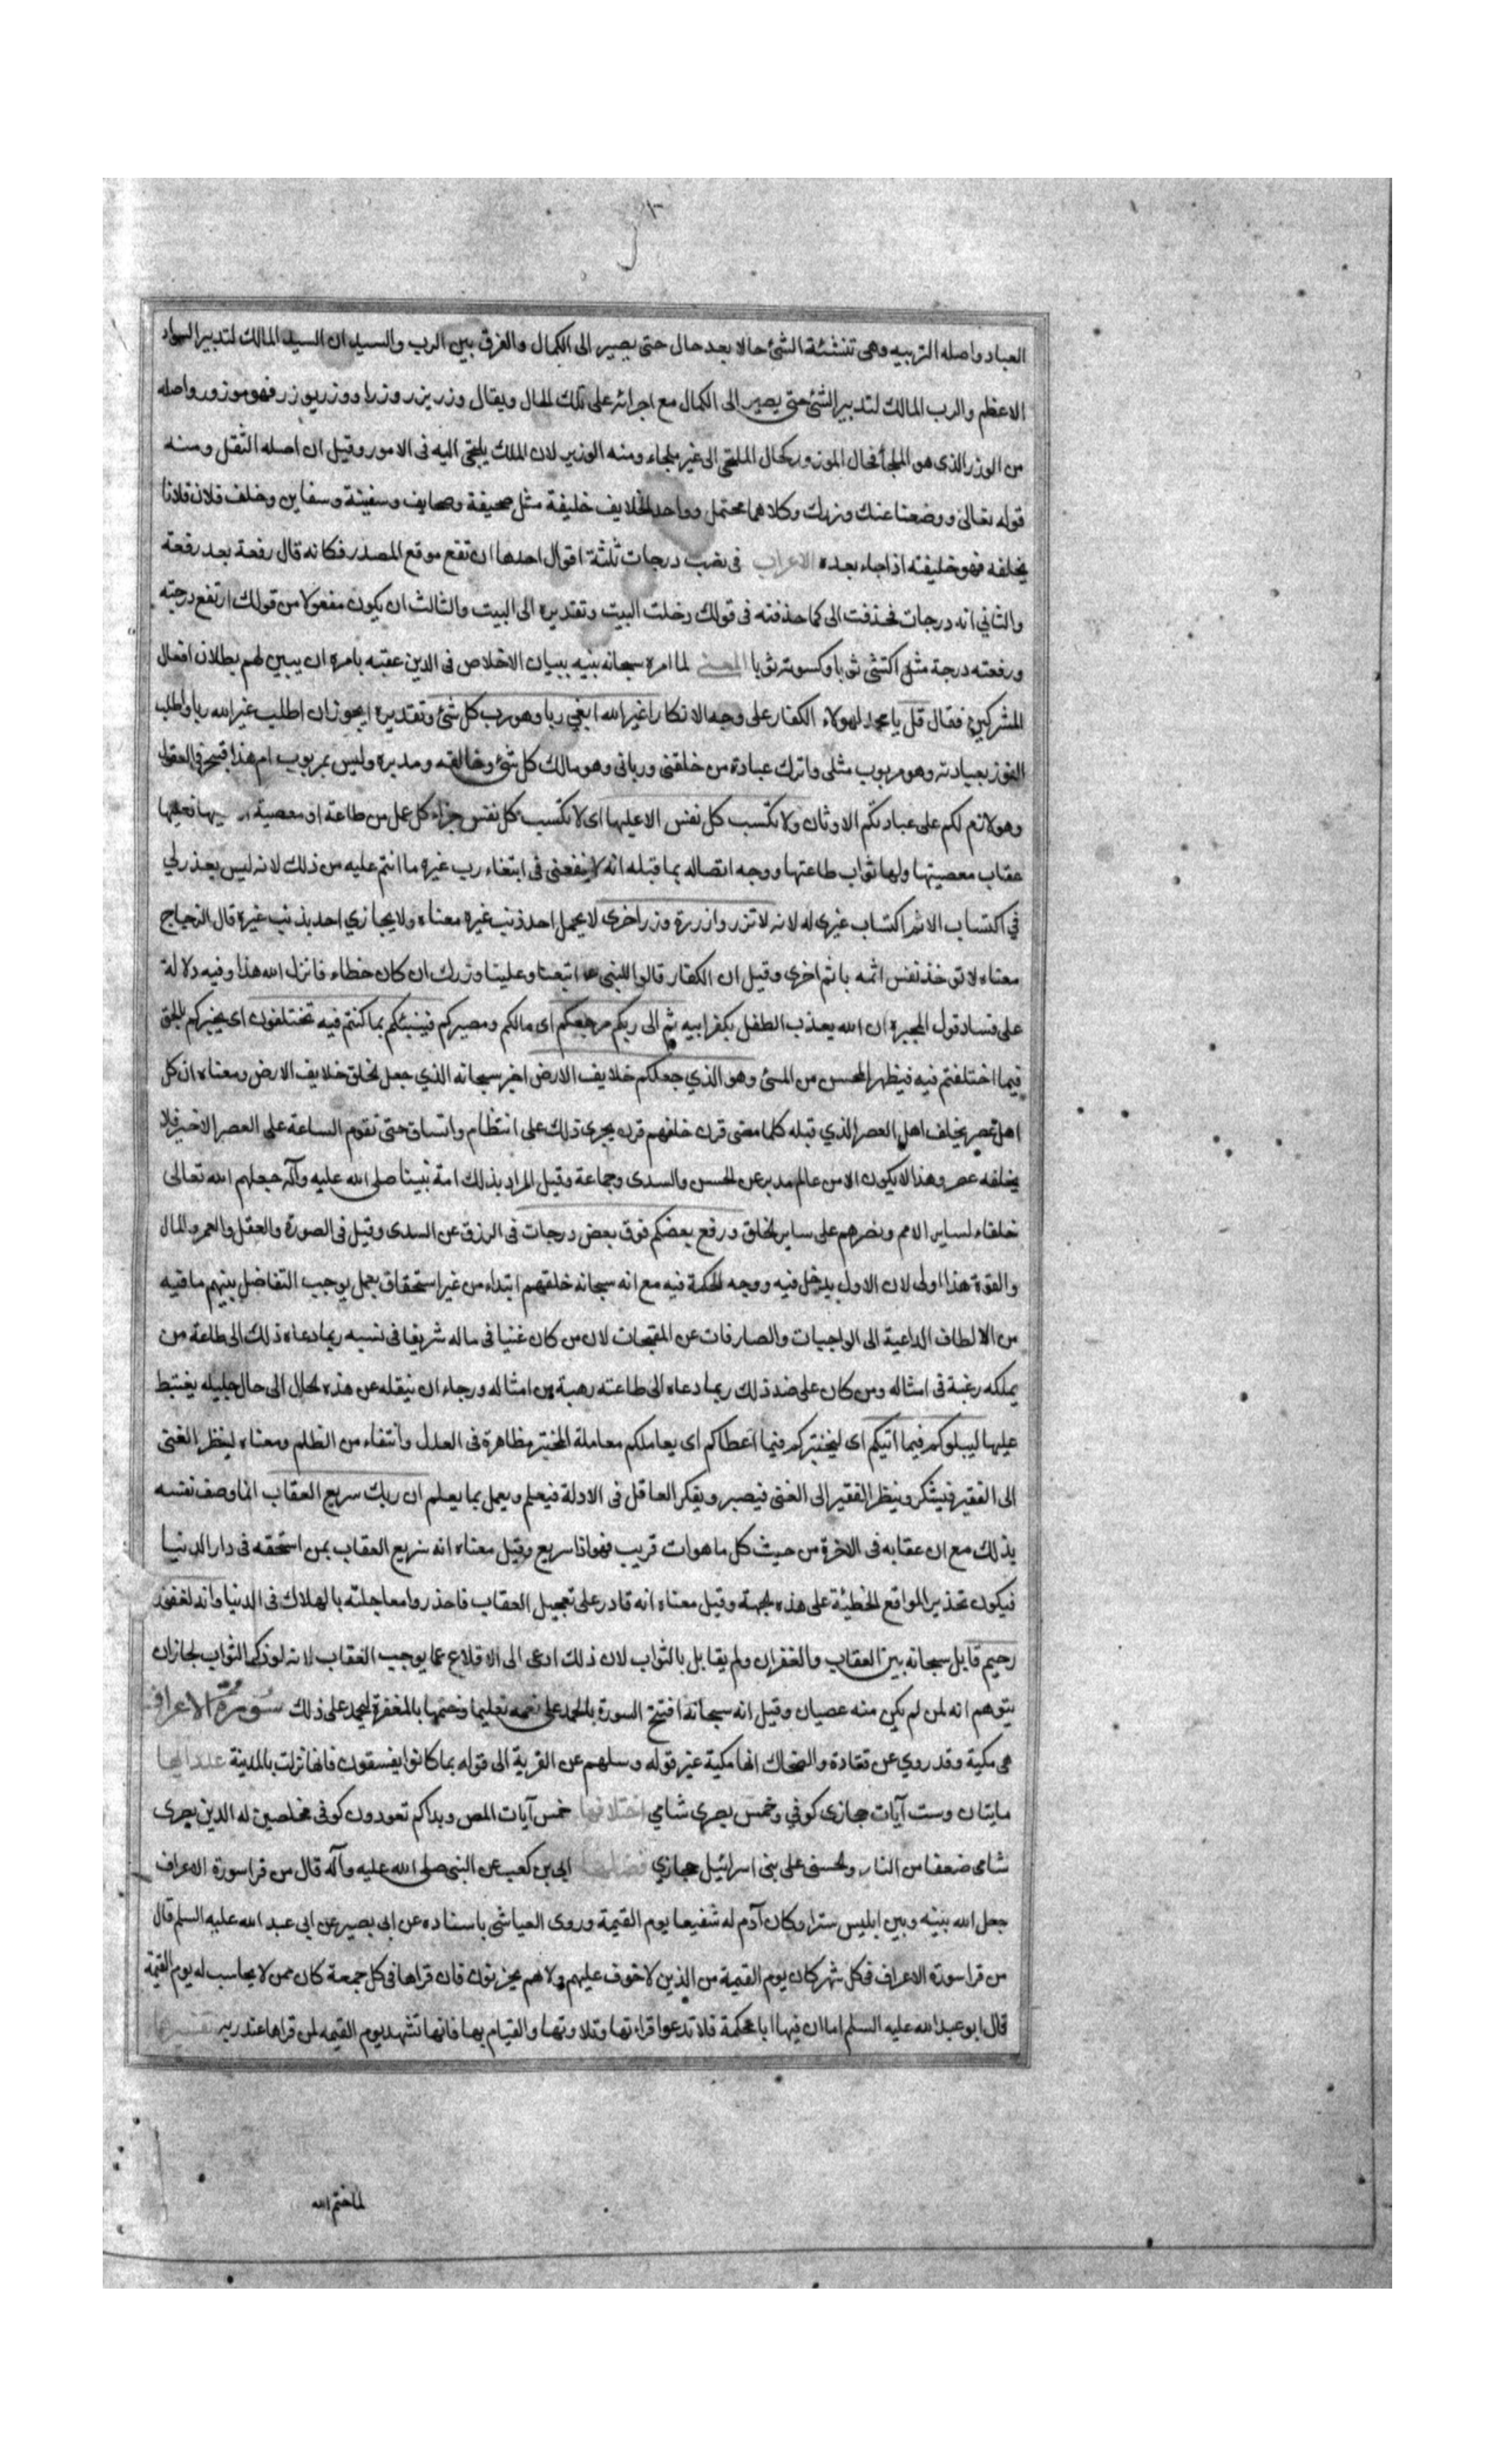 العباد واصله التربيه وهى تنشئة الشئ حالا بعد حال حتى يصير الى الكمال والفرق بين الرب والسيد ان السيد المالك لتدبير السواد
الاعظم والرب المالك لتدبير الشئ حتى يصير الى الكمال مع اجرائه على تلك الحال ويقال وزر يزر وزرا ووزر يوزر فهو موزور واصله
من الوزر الذى هو الملجأ فحال الموزور كحال الملتجى الى غير ملجاء ومنه الوزير لان الملك يلتجى اليه فى الامور وقيل ان اصله الثقل ومنه
قوله تعالى ووضعنا عنك وزرك وكلاهما محتمل وواحد الخلايف خليفة مثل صحيفة وصحايف وسفينة وسفاين وخلف فلان فلانا
يخلفه فهو خليفته اذا جاء بعده الاعراب فى نصب درجات ثلثة اقوال احدها ان تقع موقع المصدر فكانه قال رفعة بعد رفعة
والثاني انه درجات فحذفت الى كما حذفته فى قولك دخلت البيت وتقديره الى البيت والثالث ان يكون مفعولا من قولك ارتفع درجته
ورفعته درجة مثل اكتسى ثوبا وكسوته ثوبا المعنى لما امره سبحانه بنيه ببيان الاخلاص فى الدين عقبه بامره ان يبين لهم بطلان افعال
المشركين فقال قل يا محمد لهولاء الكفار على وجه الانكار اغير الله ابغي ربا وهو رب كل شئ وتقديره ايجوز ان اطلب غير الله ربا واطلب
الفوز بعبادته وهو مربوب مثلى واترك عبادة من خلقنى ورباني وهو مالك كل شئ وخالقه ومدبره وليس بمربوب ام هذا قبيح فى العقول
وهو لازم لكم على عبادتكم الاوثان ولا تكسب كل نفس الا عليها اى لا تكسب كل نفس جزاء كل عمل من طاعة او معصية فعليها
عقاب معصيتها ولها ثواب طاعتها ووجه اتصاله بما قبله انه لا ينفعنى فى ابتغاء رب غيره ما انتم عليه من ذلك لانه ليس بعذر لي
في اكتساب الاثم اكتساب غيرى له لانه لا تزر وازرة وزر اخرى لا يحمل احد ذنب غيره معناه ولا يجازي احد بذنب غيره قال الزجاج
معناه لا تؤخذ نفس اثمه باثم اخرى وقيل ان الكفار قالوا للنبى ص اتبعنا وعلينا وزرك ان كان خطاء فانزل الله هذا وفيه دلالة
على فساد قول المجبرة ان الله يعذب الطفل بكفر ابيه ثم الى ربكم مرجعكم اى مالكم ومصيركم فينبئكم بما كنتم فيه تختلفون اى يخبركم بالحق
فيما اختلفتم فيه فيظهر المحسن من المسئ وهو الذي جعلكم خلايف الارض اخبر سبحانه الذي جعل الخلق خلايف الارض ومعناه ان كل
اهل عصر يخلف اهل العصر الذي قبله كلما مضى قرن خلفهم قرن يجرى ذلك على انتظام واتساق حتى تقوم الساعة على العصر الاخير فلا
يخلفه عصر وهذا لا يكون الا من عالم مدبر عن الحسن والسدى وجماعة وقيل المراد بذلك امة نبينا صلى الله عليه وآله جعلهم الله تعالى
خلفاء لساير الامم ونصرهم على ساير الخلق ورفع بعضكم فوق بعض درجات فى الرزق عن السدى وقيل فى الصورة والعقل والعمر والمال
والقوة هذا اولى لان الاول يدخل فيه ووجه الحكمة فيه مع انه سبحانه خلقهم ابتداء من غير استحقاق بعمل يوجب التفاضل بينهم ما فيه
من الالطاف الداعية الى الواجبات والصارفات عن المقبحات لان من كان غنيا فى ماله شريفا فى نسبه ربما دعاه ذلك الى طاعة من
يملكه رغبة فى امثاله ومن كان على ضد ذلك ربما دعاه الى طاعته رهبة من امثاله ورجاء ان ينقله عن هذه الحال الى حال جليله يغتبط
عليها ليبلوكم فيما اتيكم اى ليختبركم فيما اعطاكم اى يعاملكم معاملة المختبر مظاهرة فى العدل وانتفاء من الظلم ومعناه لينظر الغنى
الى الفقير فيشكر وينظر الفقير الى الغنى فيصبر ويفكر العاقل فى الادلة فيعلم ويعمل بما يعلم ان ربك سريع العقاب انما وصف نفسه
بذلك مع ان عقابه فى الاخرة من حيث كل ما هوات قريب فهو اذا سريع وقيل معناه انه سريع العقاب بمن استحقه فى دار الدنيا
فيكون تحذير المواقع الخطيئة على هذه الجهة وقيل معناه انه قادر على تعجيل العقاب فاحذروا معاجلته بالهلاك فى الدنيا وانه لغفور
رحيم قابل سبحانه بين العقاب والغفران ولم يقابل بالثواب لان ذلك ادعى الى الاقلاع عما يوجب العقاب لانه لو ذكر الثواب لجاز ان
يتوهم انه لمن لم يكن منه عصيان وقيل انه سبحانه افتتح السورة بالحمد على نعمه تعليما وختمها بالمغفرة ليحمد على ذلك سورة الاعراف
هى مكية وقد روي عن قتادة والضحاك انها مكية غير قوله وسلهم عن القرية الى قوله بما كانوا يفسقون فانها نزلت بالمدينة عدد ايها
مايتان وست آيات حجازى كوفي وخمس بصرى شامي اختلافها خمس آيات المص وبداكم تعودون كوفى مخلصين له الدين بصرى
شامى ضعفا من النار والحسنى على بنى اسرائيل حجازي فضلها ابي بن كعب عن النبى صلى الله عليه وآله قال من قرا سورة الاعراف
جعل الله بينه وبين ابليس سترا وكان آدم له شفيعا يوم القيمة وروى العياشى باسناده عن ابى بصير عن ابى عبد الله عليه السلم قال
من قرا سورة الاعراف فى كل شهر كان يوم القيمة من الذين لا خوف عليهم ولا هم يحزنون فان قراها فى كل جمعة كان ممن لا يحاسب له يوم القيمة
قال ابو عبد الله عليه السلم اما ان فيها ايا محكمة فلا تدعوا قراءتها وتلاوتها والقيام بها فانها تشهد يوم القيمه لمن قراها عند ربه تفسيرها
لما ختم الله